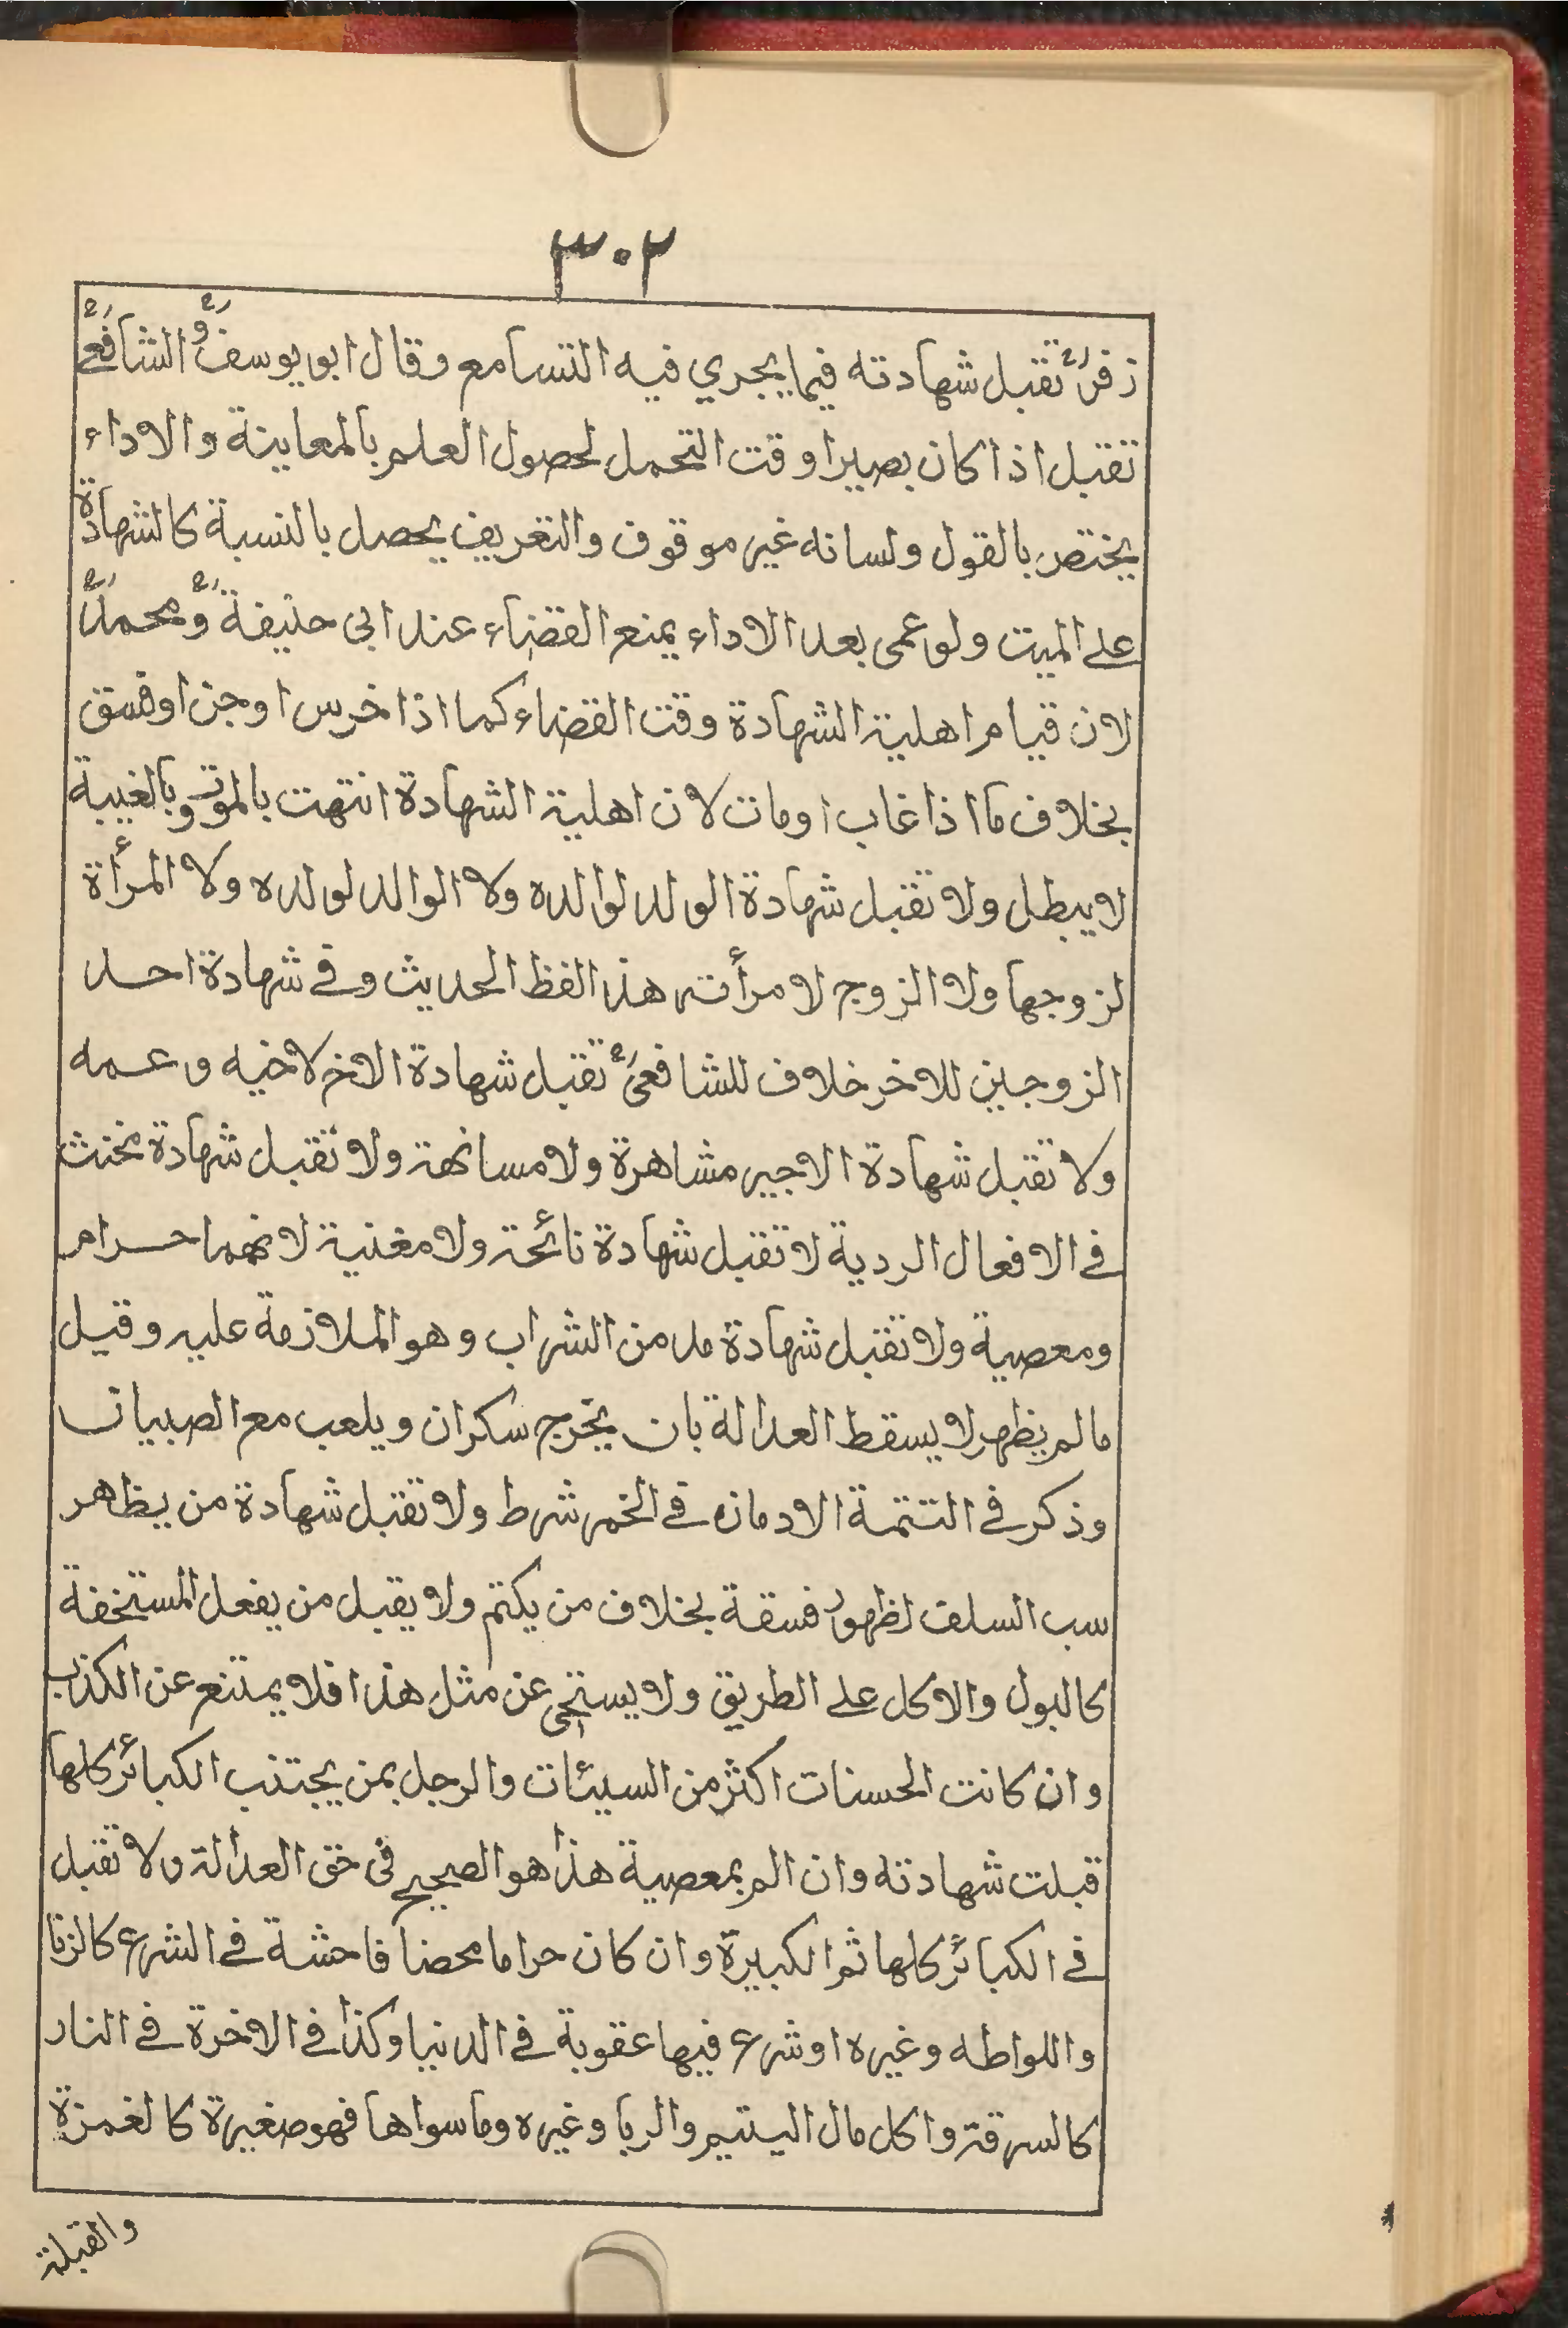 ٣٠٢
زفرؒ تقبل شهادته فيما يجري فيه التسامع وقال ابو يوسفؒ والشافعےؒ
تقبل اذا كان بصيرا وقت التحمل لحصول العلم بالمعاينة والاداء
يختص بالقول ولسانه غير موقوف والتعريف يحصل بالنسبة كالشهادة
علے الميت ولو عمى بعد الاداء يمنع القضاء عند ابى حنيفةؒ ومحمدؒ
لان قيام اهلية الشهادة وقت القضاء كما اذا خرس او جن او فسق
بخلاف ما اذا غاب او مات لان اهلية الشهادة انتهت بالموت وبالغيبة
لا يبطل ولا تقبل شهادة الولد لوالده ولا الوالد لولده ولا المرأة
لزوجها ولا الزوج لامرأته هذا لفظ الحديث وفے شهادة احد
الزوجين للاخر خلاف للشافعىؒ تقبل شهادة الاخ لاخيه وعمه
ولا تقبل شهادة الاجير مشاهرة ولا مسانهة ولا تقبل شهادة مخنث
فے الافعال الردية لا تقبل شهادة نائحة ولا مغنية لانهما حرام
ومعصية ولا تقبل شهادة مدمن الشراب وهو الملازمة عليه وقيل
ما لم يظهر لا يسقط العدالة بان يخرج سكران ويلعب مع الصبيان
وذكر فے التتمة الادمان فے الخمر شرط ولا تقبل شهادة من يظهر
سب السلف لظهور فسقة بخلاف من يكتم ولا يقبل من يفعل المستخفة
كالبول والاكل علے الطريق ولا يستحى عن مثل هذا فلا يمتنع عن الكذب
وان كانت الحسنات اكثر من السيئات والرجل بمن يجتنب الكبائر كلها
قبلت شهادته وان الم بمعصية هذا هو الصحيح فى حق العدالة ولا تقبل
فے الكبائر كلها ثم الكبيرة وان كان حراما محضا فاحشة فے الشرع كالزنا
واللواطه وغيره او شرع فيها عقوبة فے الدنيا وكذا فے الاخرة فے النار
كالسرقة واكل مال اليتيم والربا وغيره وما سواها فهو صغيرة كالغمزة
والقبلة